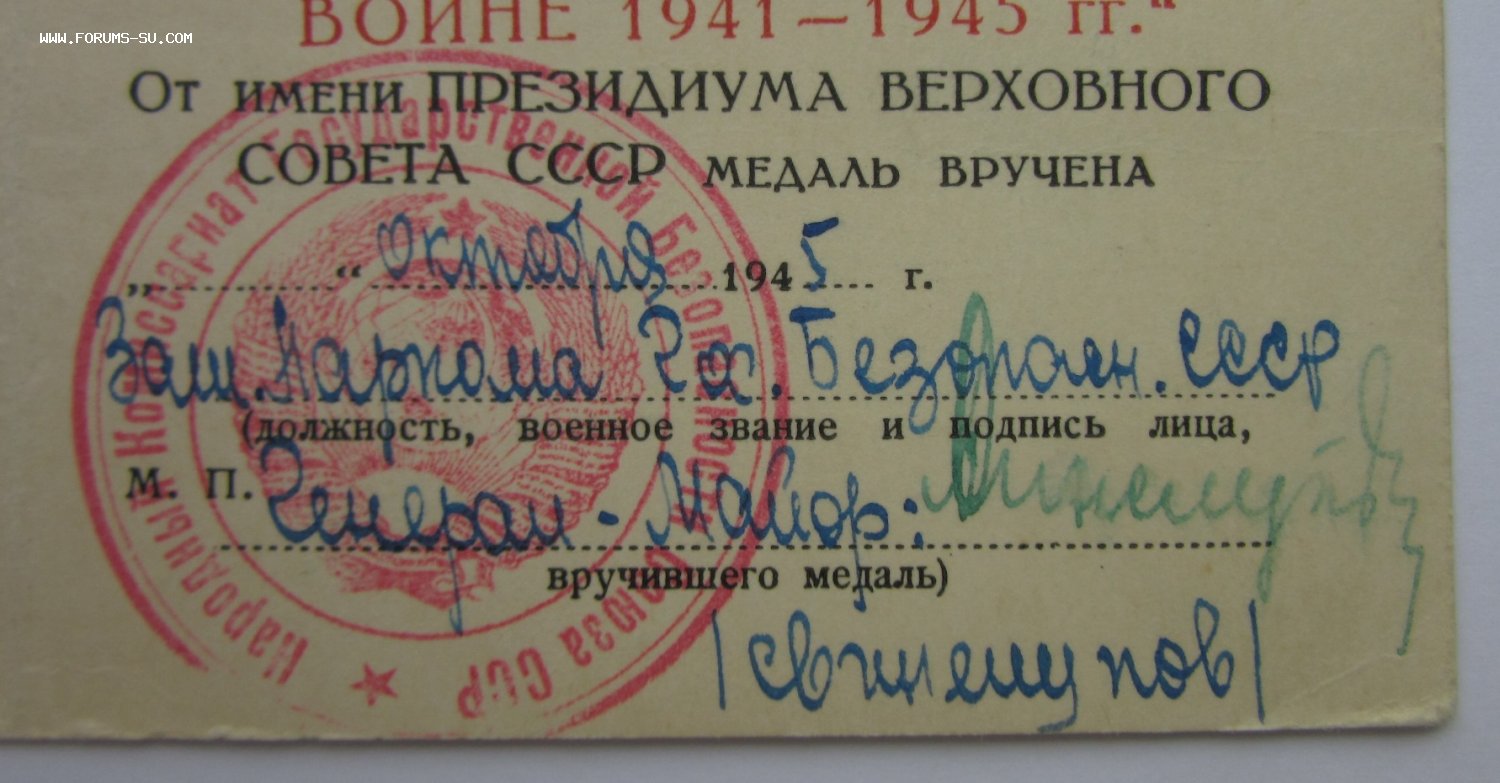 WWW.FORUMS-SU.COM
ВОЙНЕ 1941—1945 гг."
От имени ПРЕЗИДИУМА ВЕРХОВНОГО
СОВЕТА СССР МЕДАЛЬ ВРУЧЕНА
„ “ Октября 1945 г.
Зам. Наркома Гос. Безопасн. СССР
(должность, военное звание и подпись лица,
М. П. Генерал-Майор:
вручившего медаль)
/Свинелупов/
Народный Комиссариат Государственной Безопасности Союза ССР